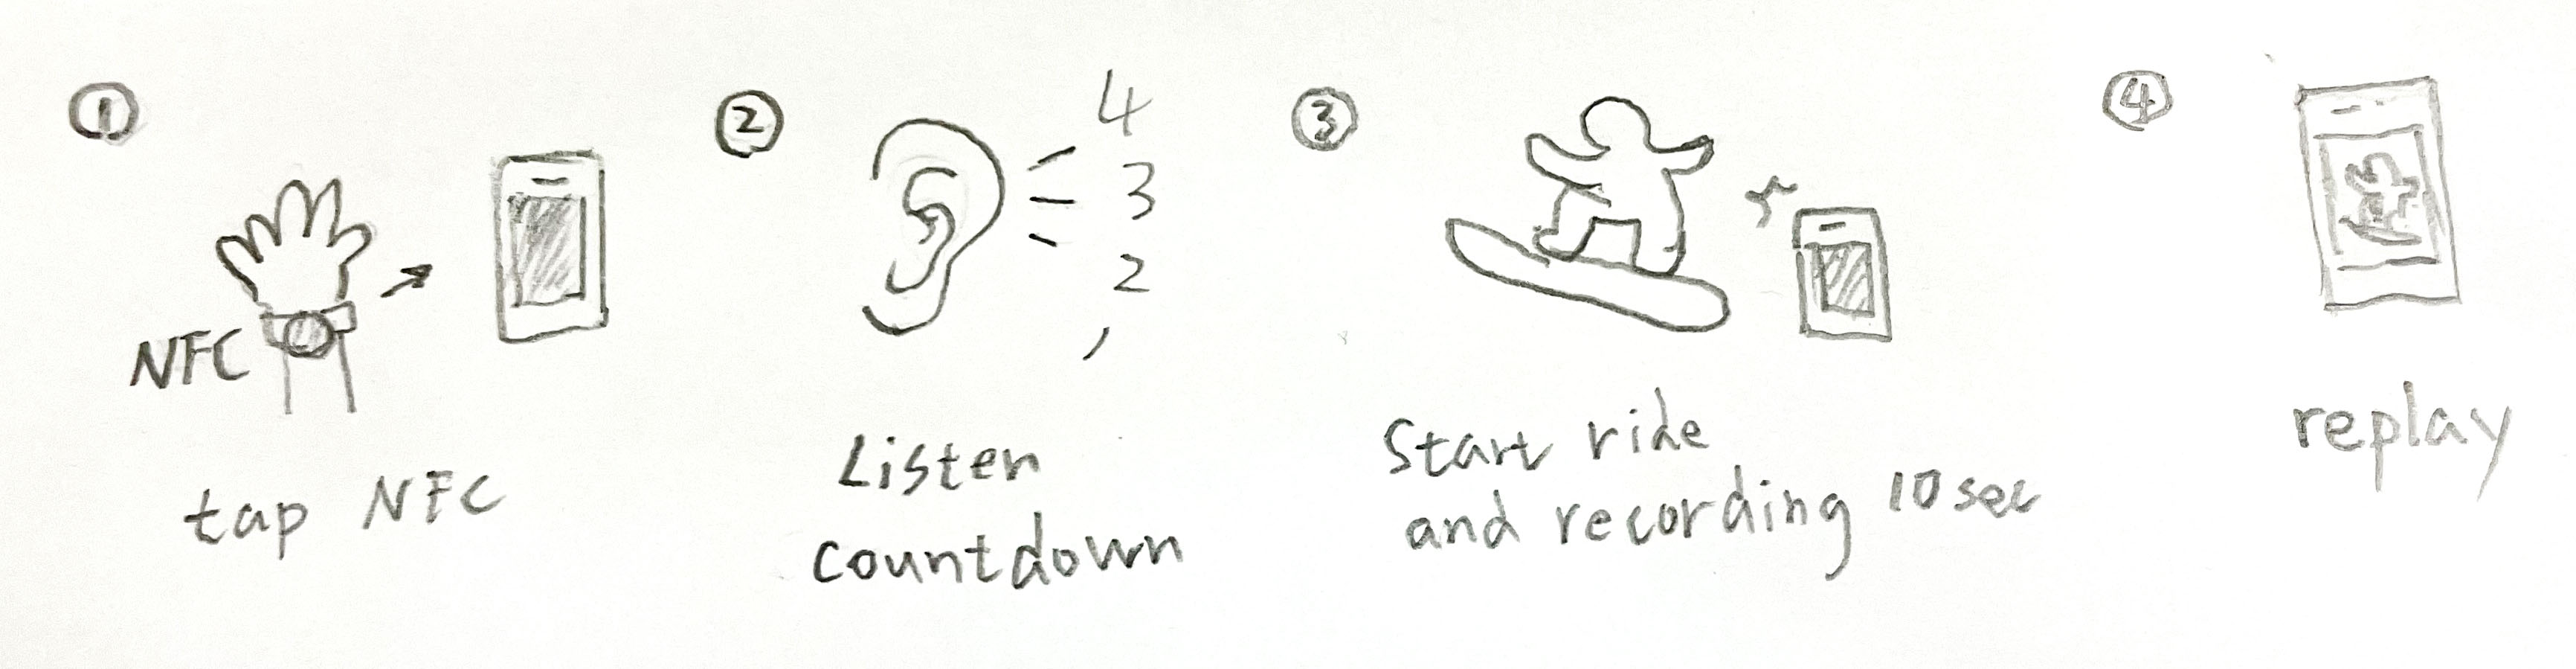 ①
NFC
tap NFC
②
4
3
2
Listen
countdown
③
Start ride
and recording 10sec
④
replay